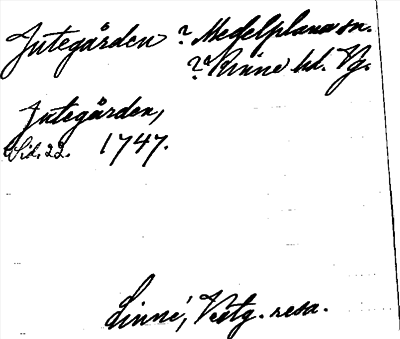 Jutegården ? Medelplana sn.
? Kinne hd. Vg.
Jutegården,
Sid. 22. 1747.
Linné, Vestg. resa.